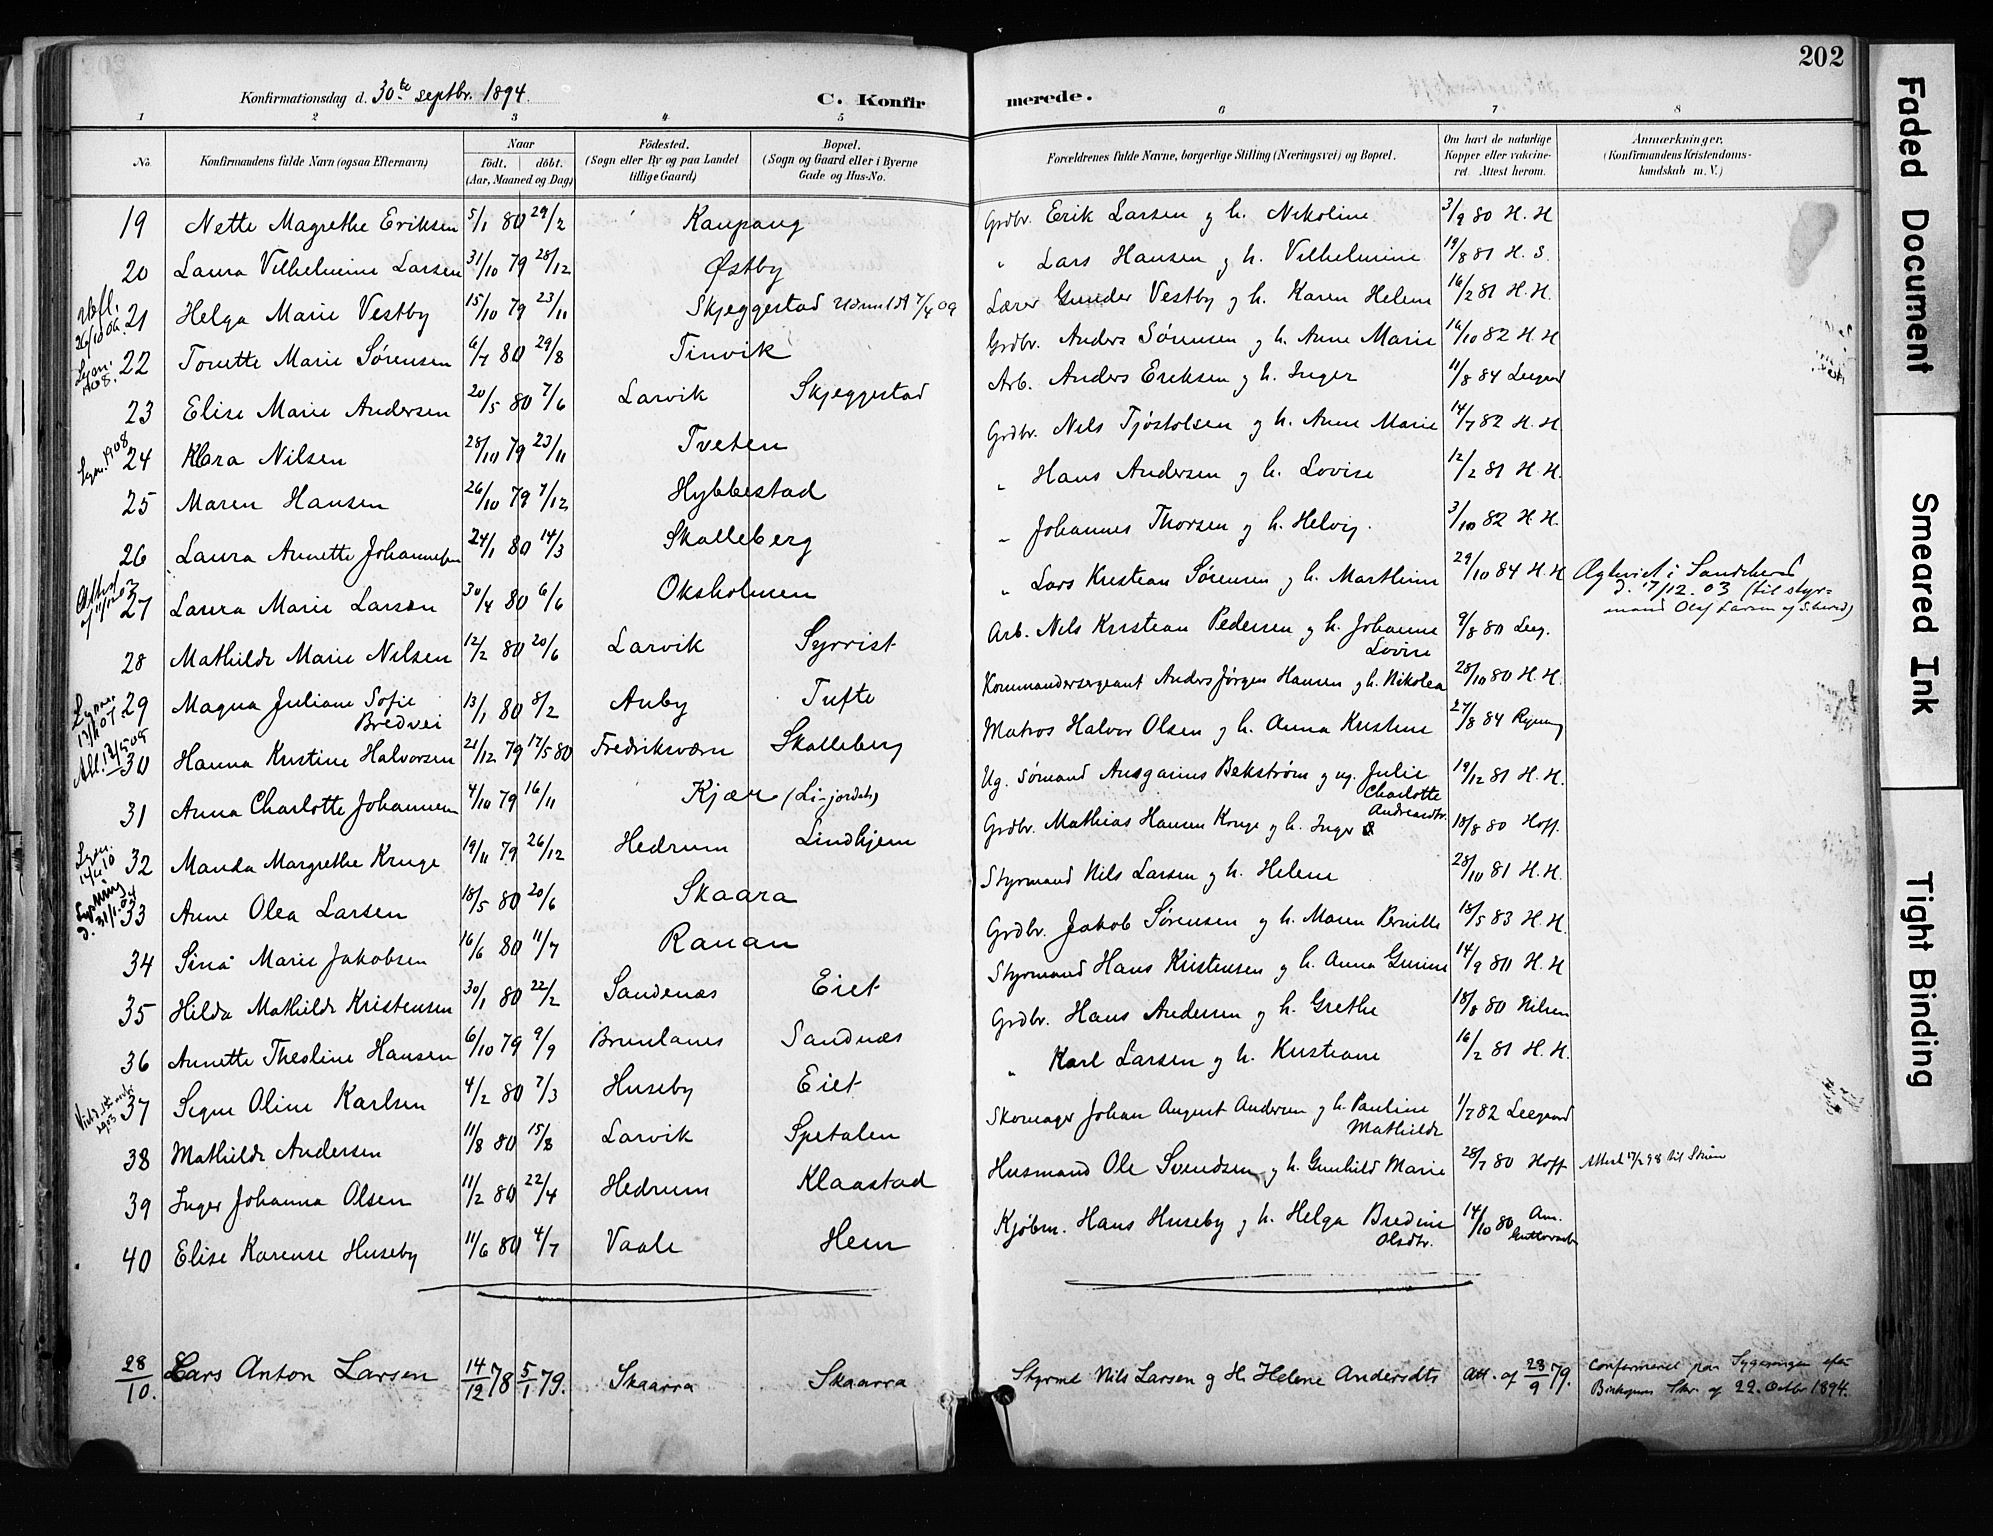 202
Konfirmationsdag d. 30te septbr. 1894.
C. Konfirmerede.
1 2 3 4 5 6 7 8
No. Konfirmandens fulde Navn (ogsaa Efternavn) Naar født. døbt. (Aar, Maaned og Dag) Fødested. (Sogn eller By og paa Landet tillige Gaard) Bopæl. (Sogn og Gaard eller i Byerne Gade og Hus-No. Forældrenes fulde Navne, borgerlige Stilling (Næringsvei) og Bopæl. Om havt de naturlige Kopper eller vakcineret. Attest herom. Anmærkninger. (Konfirmandens Kristendomskundskab m. V.)
19 Nette Magrethe Eriksen 5/1 80 29/2 Kaupang Grdbr. Erik Larsen g h. Nikoline 3/9 80 H. H
20 Laura Vilhelmine Larsen 31/10 79 28/12 Østby " Lars Hansen g h. Vilhelmine 19/8 81 H. S.
26/10 06. 21 Helga Marie Vestby 15/10 79 23/11 Skjeggestad Udmeldt 7/4 09 Lærer Gunder Vestby g h. Karen Helene 16/2 81 H. H.
1908. 22 Tonette Marie Sørensen 6/7 80 29/8 Tinvik Grdbr. Anders Sørensen g h. Anne Marie 16/10 82 H. H
23 Elise Marie Andersen 20/5 80 7/6 Larvik Skjeggestad Arb. Anders Eriksen g h. Inger 11/8 84 Leegaard
1908 24 Klara Nilsen 28/10 79 23/11 Tveten Grdbr. Nils Tjøstolsen g h. Anne Marie 14/7 82 H. H
25 Maren Hansen 26/10 79 7/12 Hybbestad " Hans Andersen g h. Lovise 12/2 81 H. H.
26 Laura Annette Johannesen 24/1 80 14/3 Skalleberg " Johannes Thorsen g h. Helvig. 3/10 82 H. H.
27 Laura Marie Larsen 30/4 80 6/6 Oksholmen " Lars Kristian Sørensen g h. Marthine 29/10 84 H. H Ægteviet i Sandeherd
d. 17/12. 03 (til styrmand Olaf Larsen af S.herred)
28 Mathilde Marie Nilsen 12/2 80 20/6 Larvik Syrrist Arb. Nils Kristian Pedersen g h. Johanne Lovise 9/8 80 Leeg.
29 Magna Juliane Sofie Bredvei 13/1 80 8/2 Auby Tufte Kommandersergeant Anders Jørgen Hansen g h. Nikolea 28/10 80 H. H.
30 Hanna Kristine Halvorsen 21/12 79 17/5 80 Fredriksværn Skalleberg Matros Halvor Olsen g h. Anna Kristine 27/8 84 Rynning
31 Anna Charlotte Johannesen 4/10 79 16/11 Kjær (Li-jordet) Ug. Sømand Ansgarius Bekstrøm g ug. Julie Charlotte Andreasdtr. 19/12 81 H. H.
14/4 10 32 Manda Margrethe Kruge 19/11 79 26/12 Hedrum Lindhjem Grdbr. Mathias Hansen Kruge g h. Inger 18/8 80 Hoff.
Lysning d. 31/1.04 33 Anne Olea Larsen 18/5 80 20/6 Skaara Styrmand Nils Larsen g h. Helene 28/10 81 H. H.
34 Sina Marie Jakobsen 16/6 80 11/7 Rauan Grdbr. Jakob Sørensen g h. Maren Pernille 18/5 83 H. H.
35 Hilda Mathilde Kristensen 30/1 80 22/2 Sandenæs Eiet Styrmand Hans Kristensen g h. Anna Gurine 14/9 80 H. H
36 Annette Theoline Hansen 6/10 79 9/9 Brunlanes Sandnæs Grdbr. Hans Andersen g h. Grethe 18/8 80 Nilsen
1903 37 Signe Oline Karlsen 4/2 80 7/3 Huseby Eiet " Karl Larsen g h. Kristiane 16/2 81 H. H.
38 Mathilde Andersen 11/8 80 15/8 Larvik Spetalen Skomager Johan August Andersen g h. Pauline Mathilde 1/7 82 Leegaard
39 Inger Johanna Olsen 11/2 80 22/4 Hedrum Klaastad Husmand Ole Svendsen g h. Gunhild Marie 28/7 80 Hoff
40 Elise Karense Huseby 11/6 80 4/7 Vaale Hem Kjøbm. Hans Huseby g h. Helga Bredine Olsdtr. 14/10 80
28/10. Lars Anton Larsen 14/12 78 5/1 79. Skaarra Skaarra Styrmd Nils Larsen g H. Helene Andersdtr att. af 23/9 79. Confirmeret paa Sygesengen efter
Biskopens Skr. af 22. Octbr 1894.
Faded Document
Smeared Ink
Tight Binding